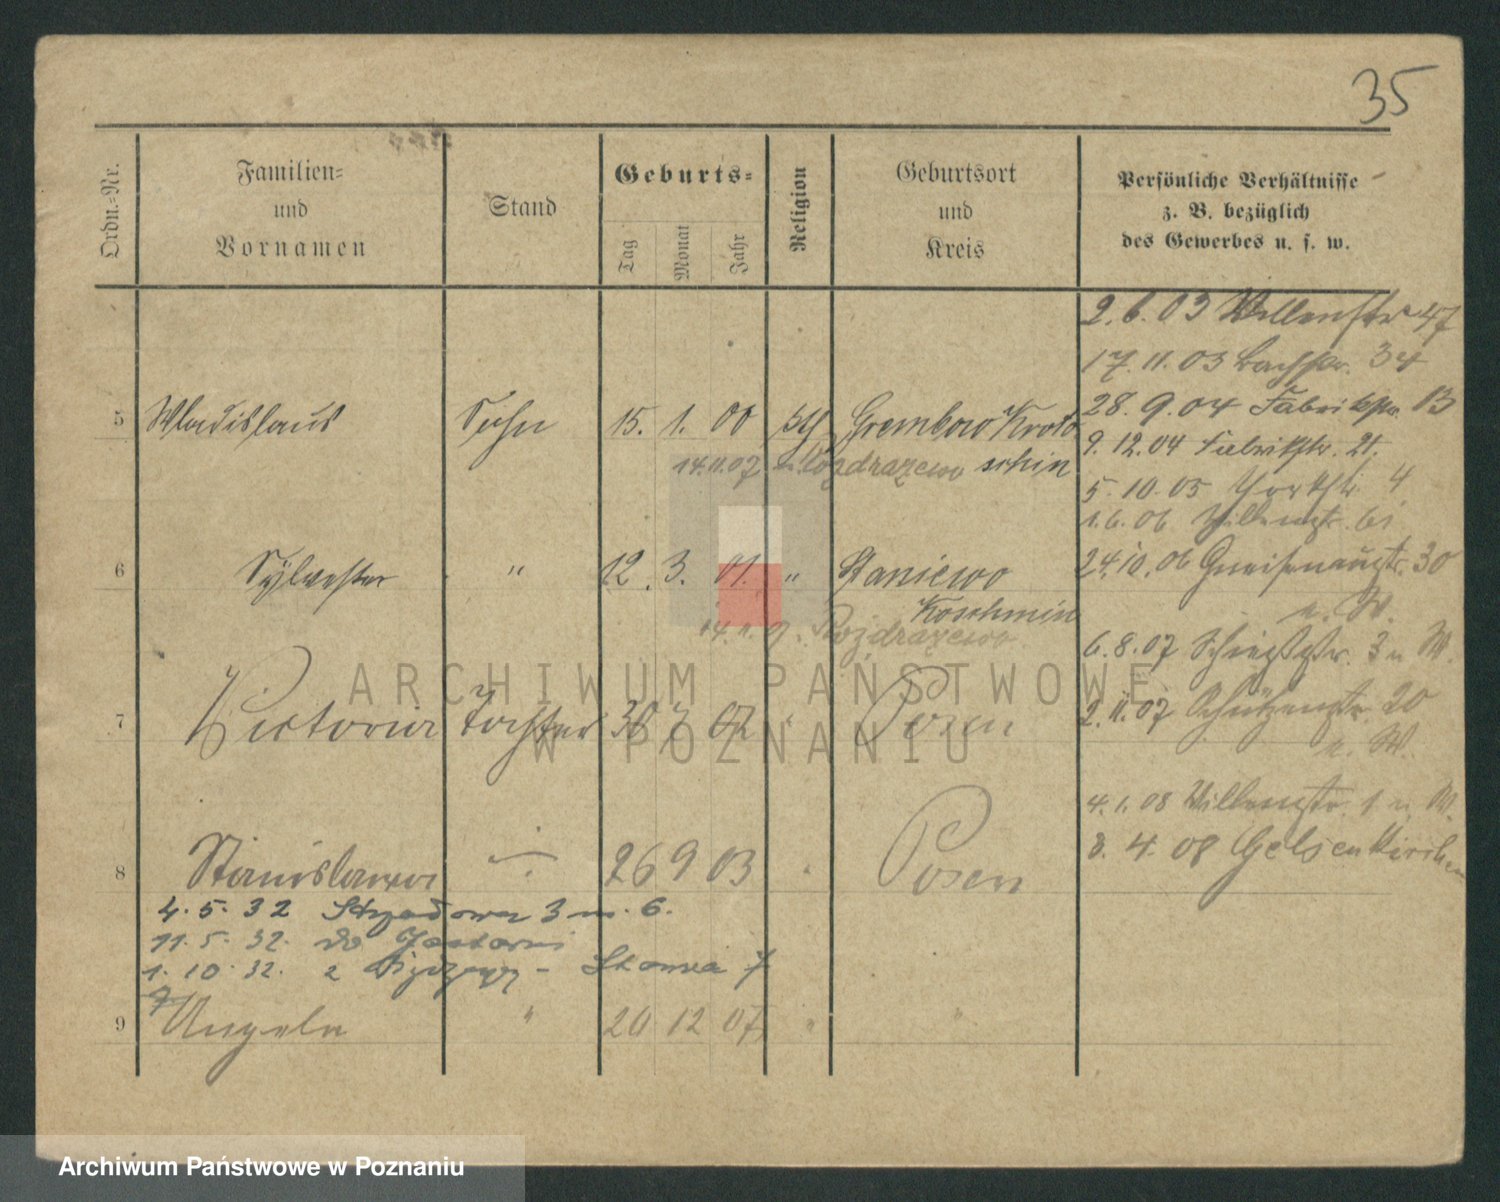 35
Ordn.-Nr.
Familien-
und
Vornamen
Stand
Geburts-
Tag
Monat
Jahr
Religion
Geburtsort
und
Kreis
Persönliche Verhältnisse
z. B. bezüglich
des Gewerbes u. s. w.
2.6.03 47
17.11.03 34
28.9.04 13
9.12.04 21.
5.10.05 Yorkstr. 4
1.6.06
24.10.06 Gneisenaustr. 30
n. W.
6.8.07 Schiesstr. 3 n W.
2.11.07 Schützenstr. 20
n. W.
4.1.08 1 n. W.
3.4.08 Gelsenkirchen
5 Wladislaus Sohn 15. 1. 00 Grembow Kroto
14.11.07 n. Rozdrazewo schin
6 Sylvester " 12. 3. 01. " Staniewo
Koschmin
14.11.07 Rozdrazewo
7 Victoria Tochter 02 Posen
8 Stanislawa 26 9 03 Posen
4.5.32 3 m. 6.
11.5.32. do
1.10.32. z 7
9 Angela " 20 12 07 " "
ARCHIWUM PAŃSTWOWE
W POZNANIU
Archiwum Państwowe w Poznaniu